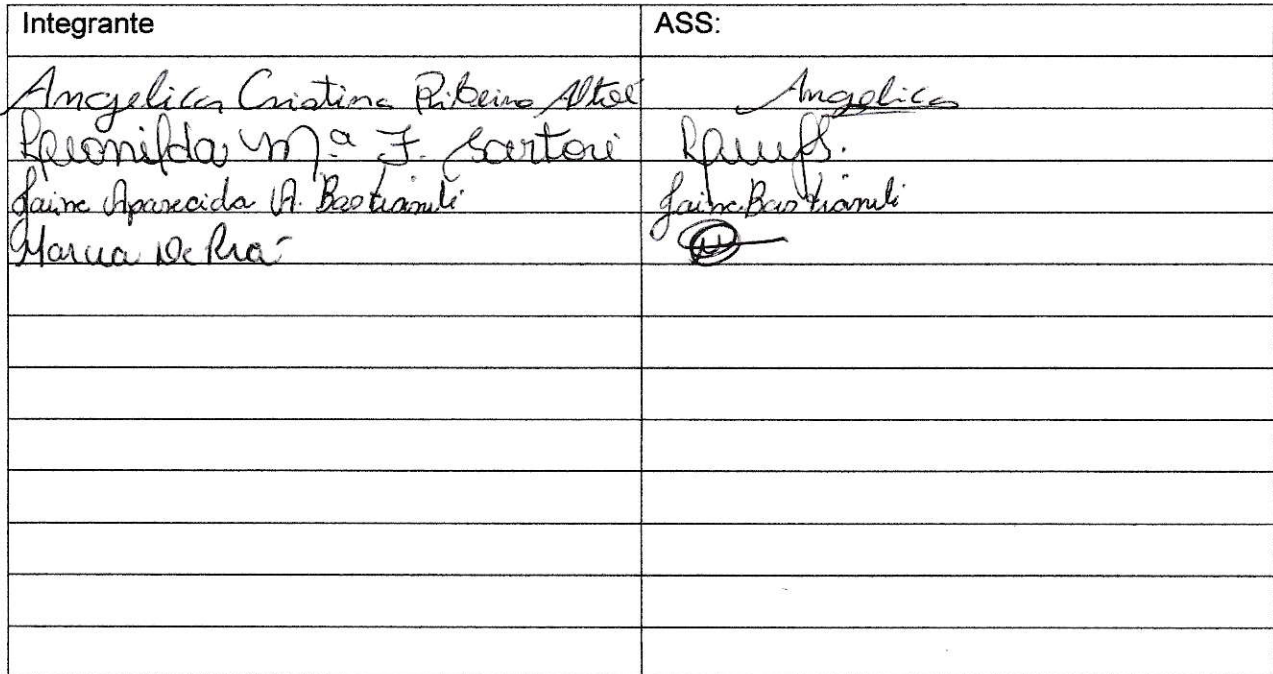 Integrante ASS:
Angelica Cristina Ribeiro Altoé Angelica
Leonilda Mª F. Sartori
Jaine Aparecida A. Bastianeli Jaine Bastianeli
Marcia De Prá